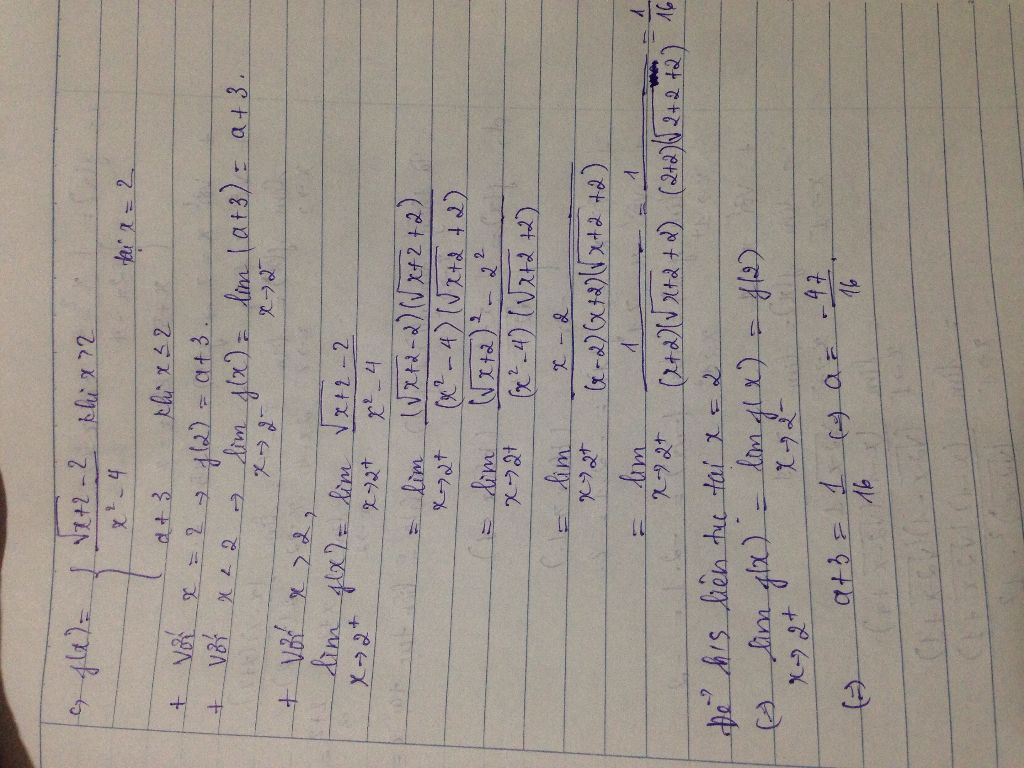 c, f(x) = { (√(x+2) - 2)/(x² - 4) khi x > 2
a + 3 khi x ≤ 2 tại x = 2
+ Với x = 2 → f(2) = a + 3.
+ Với x < 2 → lim_{x→2⁻} f(x) = lim_{x→2⁻} (a+3) = a + 3.
+ Với x > 2,
lim_{x→2⁺} f(x) = lim_{x→2⁺} (√(x+2) - 2)/(x² - 4)
= lim_{x→2⁺} ((√(x+2) - 2)(√(x+2) + 2))/((x² - 4)(√(x+2) + 2))
= lim_{x→2⁺} ((√(x+2))² - 2²)/((x² - 4)(√(x+2) + 2))
= lim_{x→2⁺} (x - 2)/((x - 2)(x+2)(√(x+2) + 2))
= lim_{x→2⁺} 1/((x+2)(√(x+2) + 2)) = 1/((2+2)(√(2+2) + 2)) = 1/16
Để h/s liên tục tại x = 2
(=) lim_{x→2⁺} f(x) = lim_{x→2⁻} f(x) = f(2)
(=) a + 3 = 1/16 (=) a = -47/16.